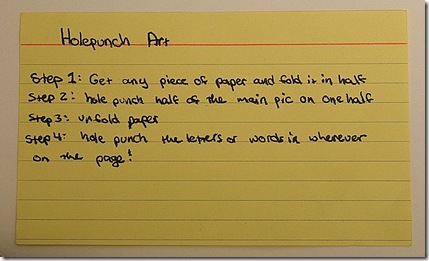 Holepunch Art
Step 1: Get any piece of paper and fold it in half
Step 2: hole punch half of the main pic on one half
Step 3: unfold paper
Step 4: hole punch the letters or words in wherever
on the page!